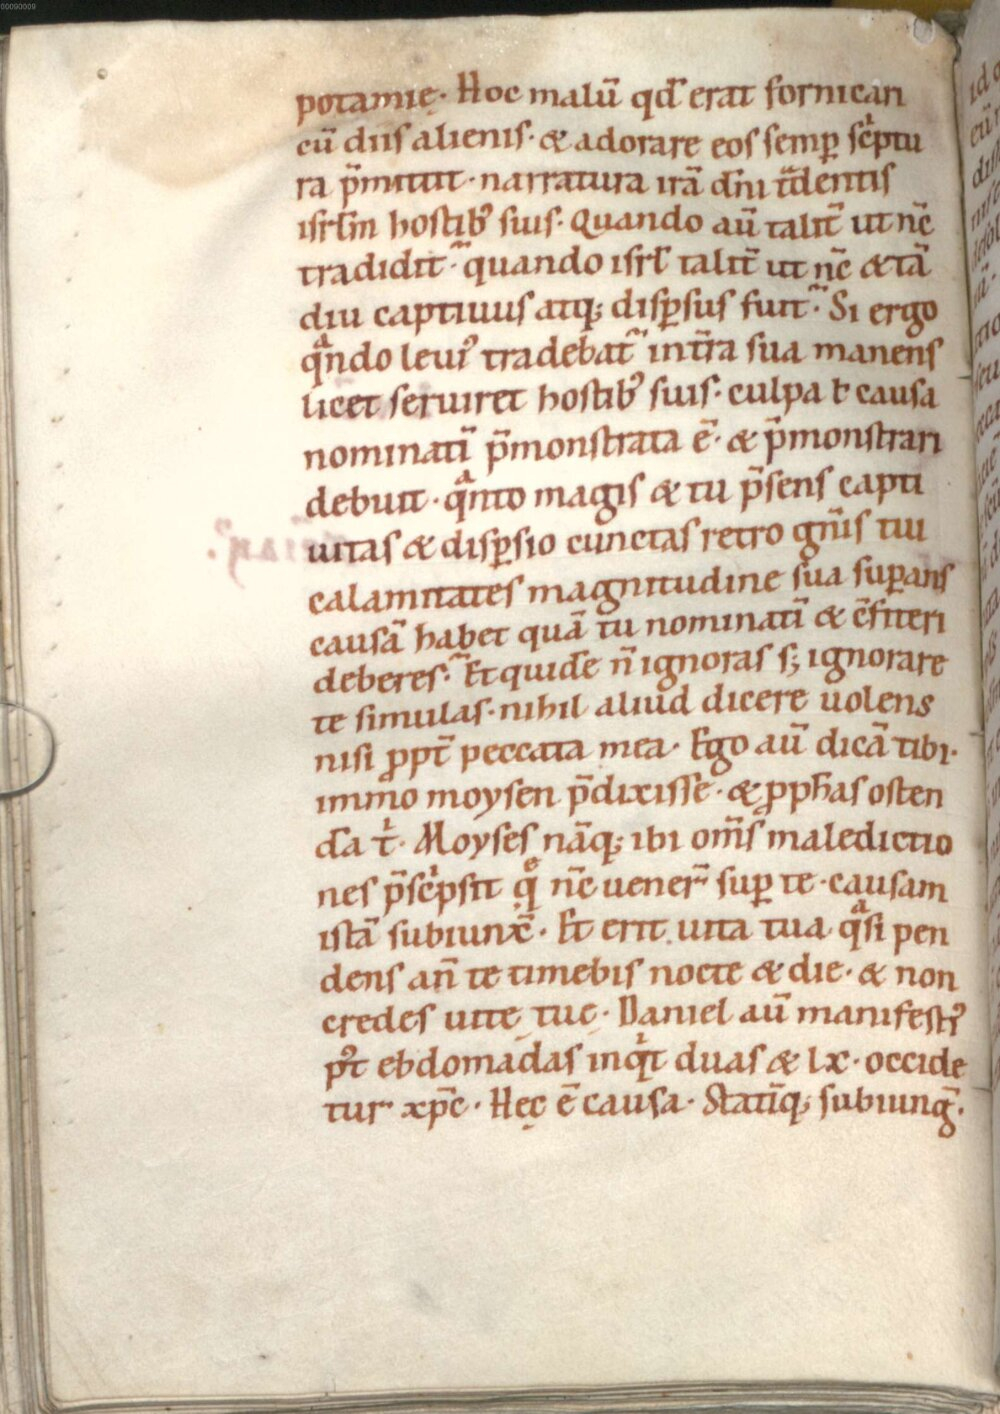 00090009
potamię. Hoc malū qđ erat fornicari
cū diis alienis. & adorare eos semp̲ sc̾ptu
ra p̄mittit. narratura irā dn̄i t̄dentis
isrłm hostib⁹ suis. Quando aū talit̄ ut nc̄
tradidit. quando isrł talit̄ ut nc̄ & tā
diu captiuus atq; disp̲sus fuit. Si ergo
qᵃndo leui⁹ tradebat᷑ int̄ra sua manens
licet seruiret hostib⁹ suis. culpa ł causa
nominatī p̄monstrata ē. & p̄monstrari
debuit. qᵃnto magis & tu p̄sens capti
uitas & disp̲sio cunctas retro gn̄is tui
calamitates magnitudine sua sup̲ans
causā habet quā tu nominatī & c̄fiteri
deberes. Et quidē n̄ ignoras s; ignorare
te simulas. nihil aliud dicere uolens
nisi ꝓpt̄ peccata mea. Ego aū dicā tibi.
immo moysen p̄dixisse. & ꝓph̄as osten
dā tⁱ. Moyses nāq; ibi om̄s maledictio
nes p̄scⁱpsit q̨ᵉ nc̄ uener᷑ sup̲ te. causam
istā subiunx̄. Et erit uita tua qᵃsi pen
dens an̄ te timebis nocte & die. & non
credes uitę tuę. Daniel aū manifesti⁹
p⁹t ebdomadas inqⁱt duas & lx. occide
tur xp̄c. Hęc ē causa. Statīq; subiunḡ.